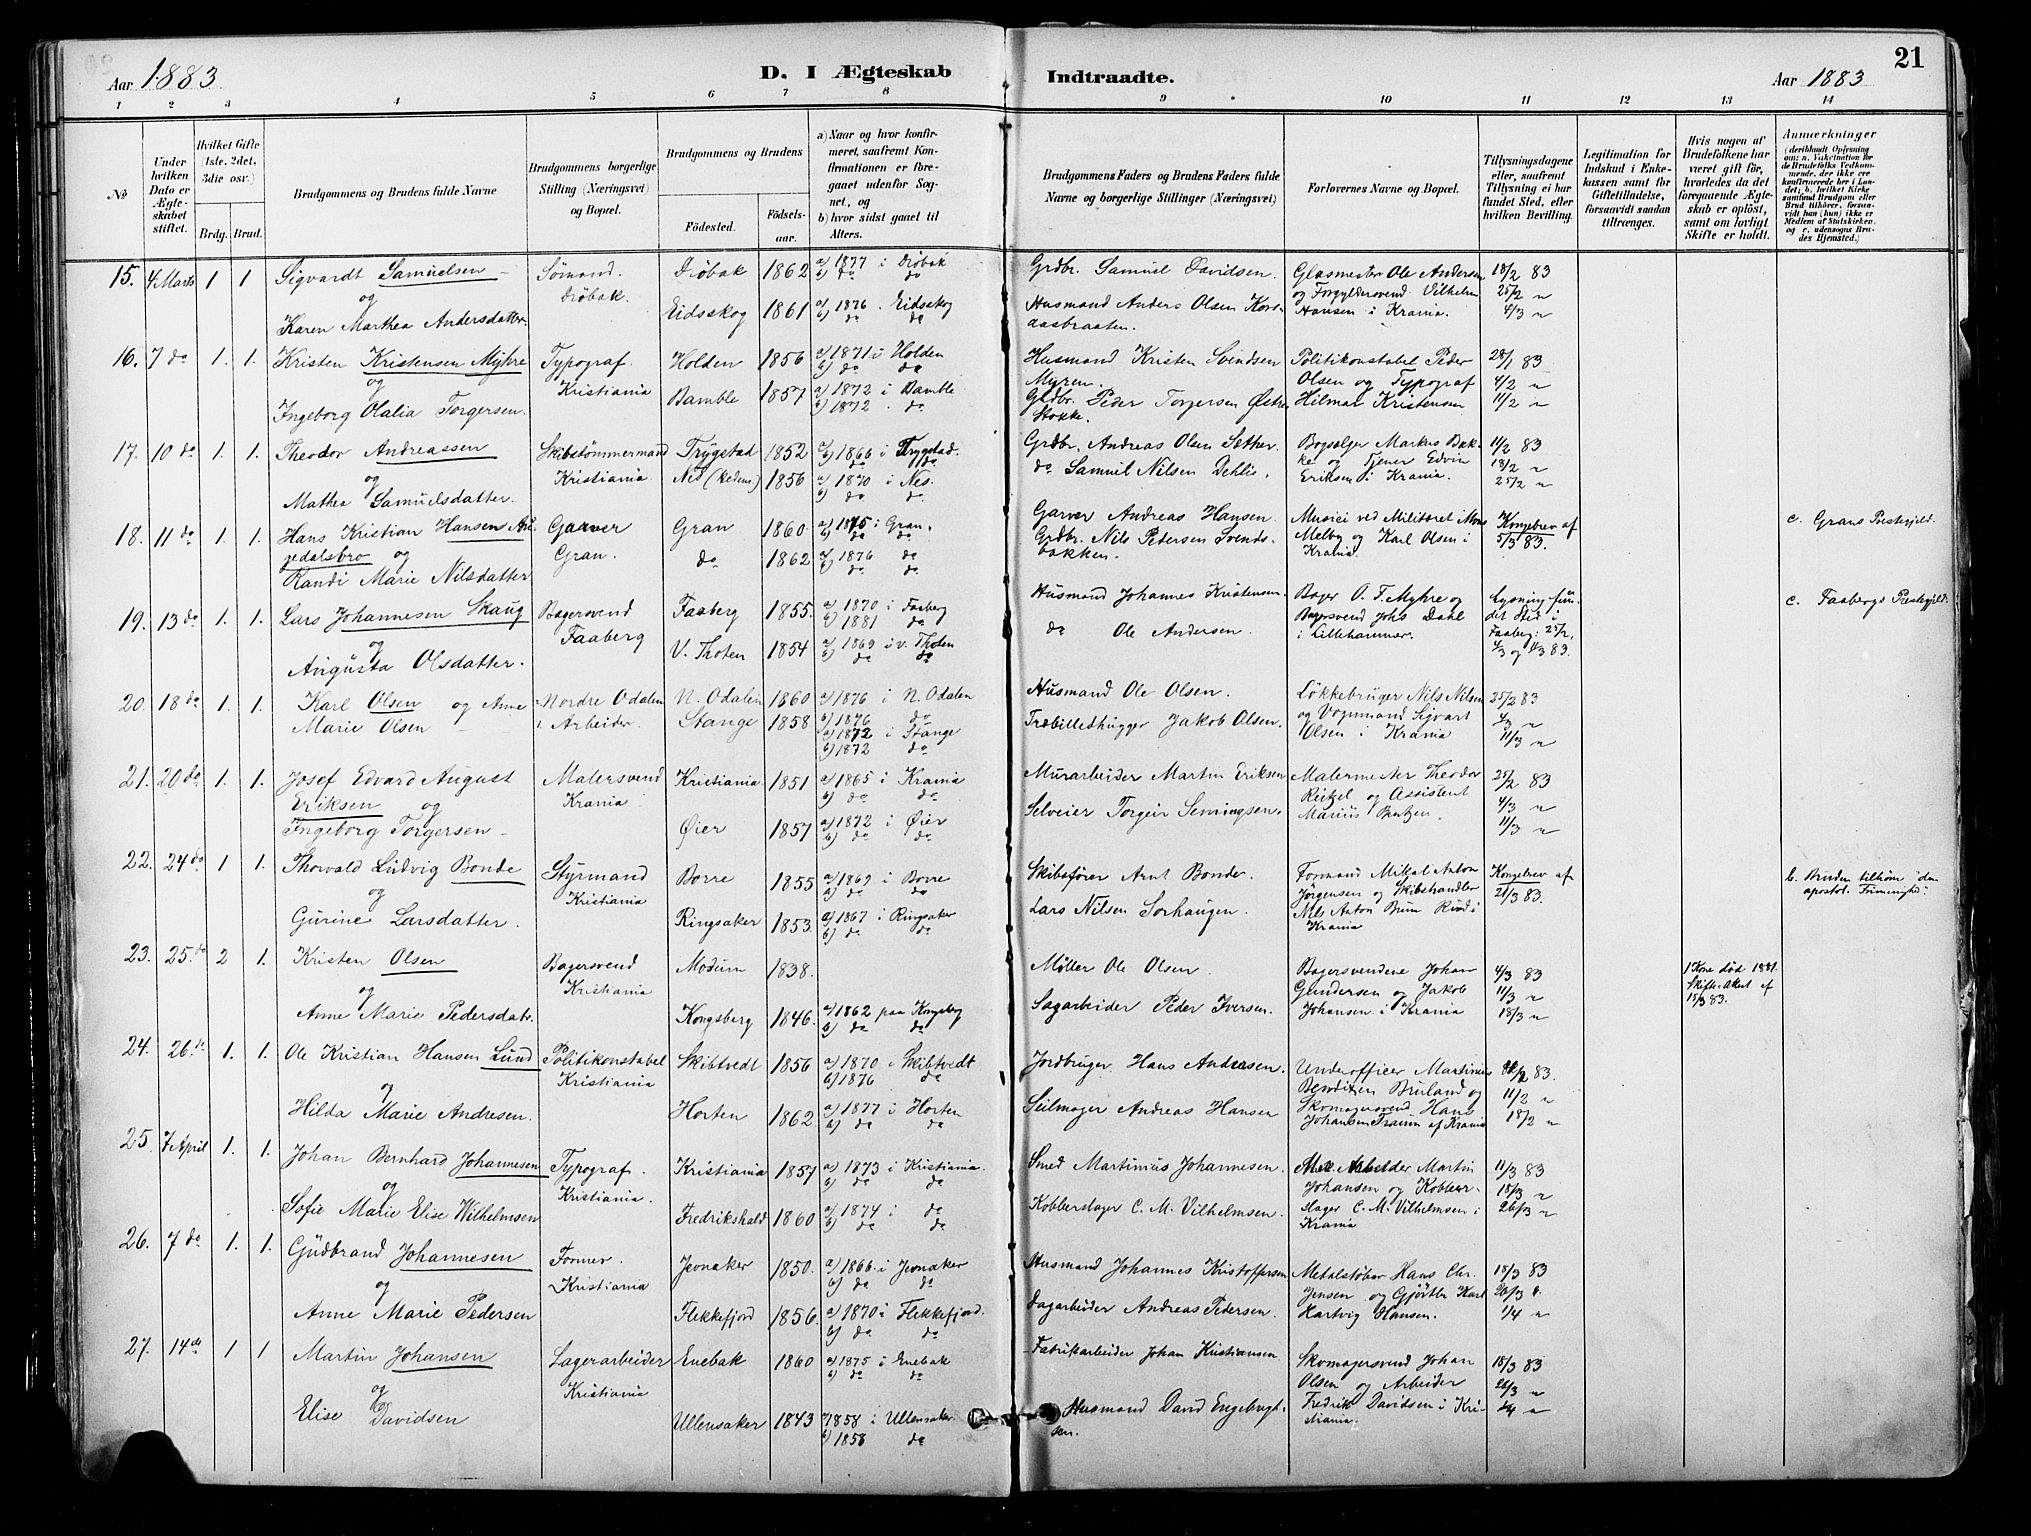 Aar 1883
D. I Ægteskab Indtraadte.
Aar 1883
21
1 2 3 4 5 6 7 8 9 10 11 12 13 14
No
Under hvilken Dato er Ægteskabet stiftet.
Hvilket Gifte (1ste, 2det, 3die osv.)
Brdg. Brud.
Brudgommens og Brudens fulde Navne
Brudgommens borgerlige Stilling (Næringsvei) og Bopæl.
Brudgommens og Brudens
Fødested. Fødselsaar.
a) Naar og hvor konfirmeret, saafremt Konfirmationen er foregaaet udenfor Sognet, og
b) hvor sidst gaaet til Alters.
Brudgommens Faders og Brudens Faders fulde Navne og borgerlige Stillinger (Næringsvei)
Forlovernes Navne og Bopæl.
Tillysningsdagene eller, saafremt Tillysning ei har fundet Sted, efter hvilken Bevilling.
Legitimation for Indskud i Enkekassen samt for Giftetilladelse, forsaavidt saadan tiltrænges.
Hvis nogen af Brudefolkene har været gift før, hvorledes da det foregaaende Ægteskab er opløst, samt om lovligt Skifte er holdt.
Anmærkninger (deriblandt Oplysning om: a. Vakcination for de Brudefolks Vedkommende, der ikke ere konfirmerede her i Landet; b. hvilket Kirkesamfund Brudgom eller Brud tilhører, forsaavidt han (hun) ikke er Medlem af Statskirken, og c. udensogns Brudes Hjemsted.)
15. 4 Marts 1 1 Sigvardt Samuelsen Sømand. Drøbak 1862 a) 1877 i Drøbak Grdbr. Samuel Davidsen. Glasmester Ole Andersen 18/2 83
og Drøbak. b) do do og Forgyldersvend Vilhelm 25/2 "
Karen Marthea Andersdatter Eidsskog 1861 a) 1876 . Eidsskog Husmand Anders Olsen Hansen i Krania. 4/3 "
b) do do
16. 7 do 1. 1. Kristen Kristensen Myhre Typograf Holden 1856 a) 1871 i Holden Husmand Kristen Svendsen Politikonstabel Peder 28/1 83
og Kristiania b) do do Myren. Olsen og Typograf 4/2 "
Ingeborg Olalia Torgersen. Bamble 1857 a) 1872 i Bamble Peder Torgersen Østre Hilmar Kristensen 11/2 "
b) 1872 . do Stokke.
17. 10 do 1. 1. Theodor Andreassen Skibstømmermand Trygstad 1852 a) 1866 i Trygstad. Grdbr. Andreas Olsen Sether. Bogsælger Markus Bakke 11/2 83
og Kristiania b) do do og Tjener Edvin 18/2 "
Mathea Samuelsdatter. Nes 1856 a) 1870 i Nes. do Samuel Nilsen Dehlie. Eriksen i Krania. 25/2 "
b) do do
18. 11 do 1. 1. Hans Kristian Hansen Garver Gran 1860 a) 1875 i Gran. Garver Andreas Hansen. Musici ved Militæret Kongebrev af c. Grans Præstegjeld.
og Gran. b) do do Grdbr. Nils Pedersen Svendsbakken. Melby og Karl Olsen i 5/3 83.
Randi Marie Nilsdatter do 1862 a) 1876 do Krania
b) do do
19. 13 do 1. 1. Lars Johannesen Skaug Bagersvend Faaberg 1855. a) 1870 i Faaberg Husmand Johannes Kristensen Bager O. F. Myhre og Lysning fundet Sted i c. Faabergs Præstegjeld.
og Faaberg b) 1881 do Bagersvend Johs Dahl Faaberg: 25/2,
Augusta Olsdatter. V. Thoten 1854 a) 1869 i v. Thoten do Ole Andersen. i Lillehammer.
b) do do
20. 18 do 1. 1. Karl Olsen og Anne Nordre Odalen N. Odalen 1860 a) 1876 i N. Odalen Husmand Ole Olsen. Løkkebruger Nils Nilsen 25/2 83
Marie Olsen Arbeider. Stange 1858 b) 1876 do Træbilledhugger Jakob Olsen. og Vognmand Sigvart 4/3 "
a) 1872 i Stange Olsen i Krania 11/3 "
b) 1872 do
21. 20 do 1. 1. Josef Edvard August Malersvend Kristiania 1851 a) 1865 i Krania Murarbeider Martin Eriksen Malermester Theodor 25/2 83
Eriksen og Krania b) do do Reitzel og Assistent 4/3 "
Ingeborg Torgersen Øier 1857 a) 1872 i Øier Selveier Torgeir Semringsen. Marius Bentzen. 11/3 "
b) do do
22. 24 do 1 1. Thorvald Ludvig Bonde Styrmand Borre 1855 a) 1869 i Borre Skibsfører Arnt Bonde. Formand Mikal Anton Kongebrev af b. Bruden tilhører "den
og Kristiania b) do do Jørgensen og Skibshandler 21/3 83. apostol. Frimenighed".
Gurine Larsdatter. Ringsaker 1853. a) 1867 i Ringsaker Lars Nilsen Sorhaugen. Nils Anton i
b) do do Krania
23. 25. do 2 1. Kristen Olsen Bagersvend Modum 1838. Møller Ole Olsen. Bagersvendene Johan 4/3 83 1 Kone død 1881.
og Kristiania Gundersen og Jakob 11/3 " Skifte-Attest af
Anne Marie Pedersdatr. Kongsberg 1846. a) 1862 paa Kongsberg Sagarbeider Peder Iversen. Johansen i Krania 18/3 " 15/3 83.
b) do do
24. 26. do 1. 1. Ole Kristian Hansen Lund Politikonstabel Skibtvedt 1856 a) 1870 i Skibtvedt Jordbruger Hans Andersen. Underofficer Martinius 83.
og Kristiania b) 1876 do Bendixen og 11/2 "
Hilda Marie Andresen. Horten 1862 a) 1877 i Horten Seilmager Andreas Hansen Skomagersvend Hans 18/2 "
b) do do Johansen af Krania
25. 7 April 1. 1. Johan Bernhard Johannesen Typograf. Kristiania 1857 a) 1873 i Kristiania. Smed Martinius Johannesen. Mek. Arbeider Martin 11/3 83
og Kristiania. b) do do Johansen og Kobber- 18/3 "
Sofie Marie Elise Wilhelmsen Fredrikshald 1860 a) 1874 i do Kobberslager C. M. Vilhelmsen. slager C. M. Vilhelmsen i 26/3 "
b) do do Krania
26. 7 do 1. 1. Gudbrand Johannesen Former. Jevnaker 1850. a) 1866 i Jevnaker Husmand Johannes Kristoffersen Metalstøber Hans Chr. 18/3 83
og Kristiania b) do do Jensen og Gjørtler Karl 26/3 "
Anne Marie Pedersen Flekkefjord 1856 a) 1870 i Flekkefjord. Dagarbeider Andreas Pedersen. Hartvig Hansen. 1/4 "
b) do do
27. 14 do 1 1 Martin Johansen Lagerarbeider Enebak 1860 a) 1875 i Enebak Fabrikarbeider Johan Kristiansen Skomagersvend Johan 18/3 83
og Kristiania b) do do Olsen og Arbeider 26/3 "
Elise Davidsen Ullensaker 1843 a) 1858 i Ullensaker Husmand David Engebregtsen. Fredrik Davidsen i Kristiania. 1/4 "
b) 1858 do